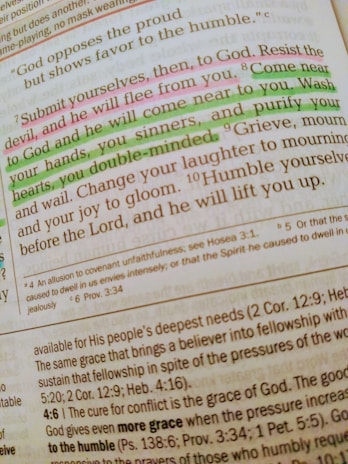 but does another.
me-playing, no mask wearing
"God opposes the proud
but shows favor to the humble."c
7Submit yourselves, then, to God. Resist the
devil, and he will flee from you. 8Come near
to God and he will come near to you. Wash
your hands, you sinners, and purify your
hearts, you double-minded. 9Grieve, mourn
and wail. Change your laughter to mourning
and your joy to gloom. 10Humble yourselve
before the Lord, and he will lift you up.
a 4 An allusion to covenant unfaithfulness; see Hosea 3:1. b 5 Or that the s
caused to dwell in us envies intensely; or that the Spirit he caused to dwell in u
jealously c 6 Prov. 3:34
available for His people's deepest needs (2 Cor. 12:9; Heb
The same grace that brings a believer into fellowship with
sustain that fellowship in spite of the pressures of the wo
5:20; 2 Cor. 12:9; Heb. 4:16).
4:6 | The cure for conflict is the grace of God. The good
God gives even more grace when the pressure increas
to the humble (Ps. 138:6; Prov. 3:34; 1 Pet. 5:5). Go
responsive to the prayers of those who humbly reque